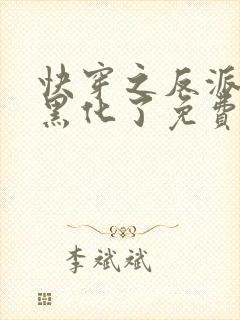 快穿之反派
黑化了免費
李斌斌